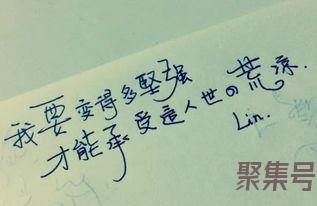 我要变得多堅强
才能承受這人世の荒凉.
Lin.
聚集号